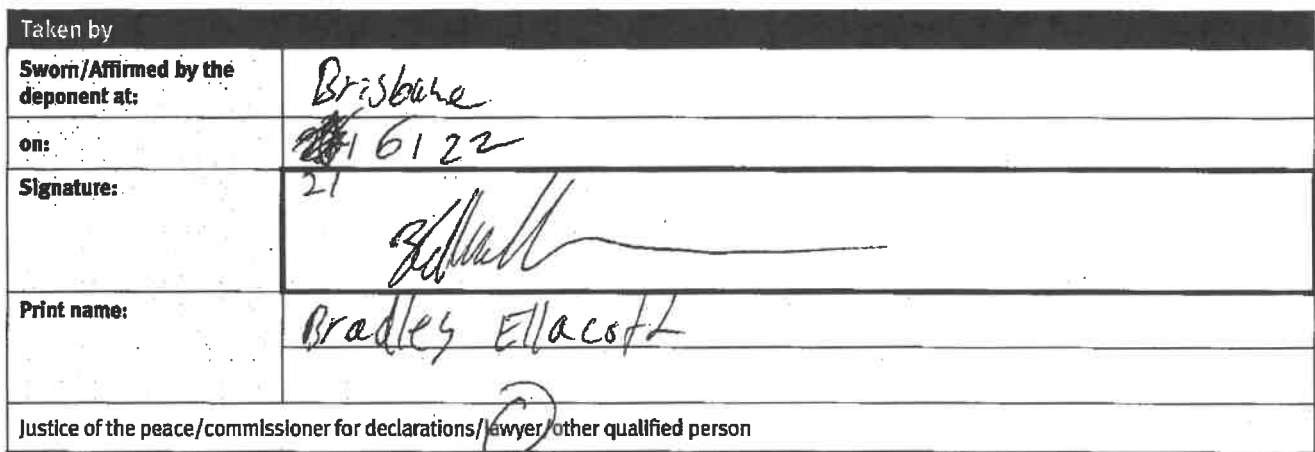 Taken by
Sworn/Affirmed by the
deponent at:
Brisbane
on:
/ 6 / 22
Signature:
21
Print name:
Bradley Ellacott
Justice of the peace/commissioner for declarations/lawyer/other qualified person